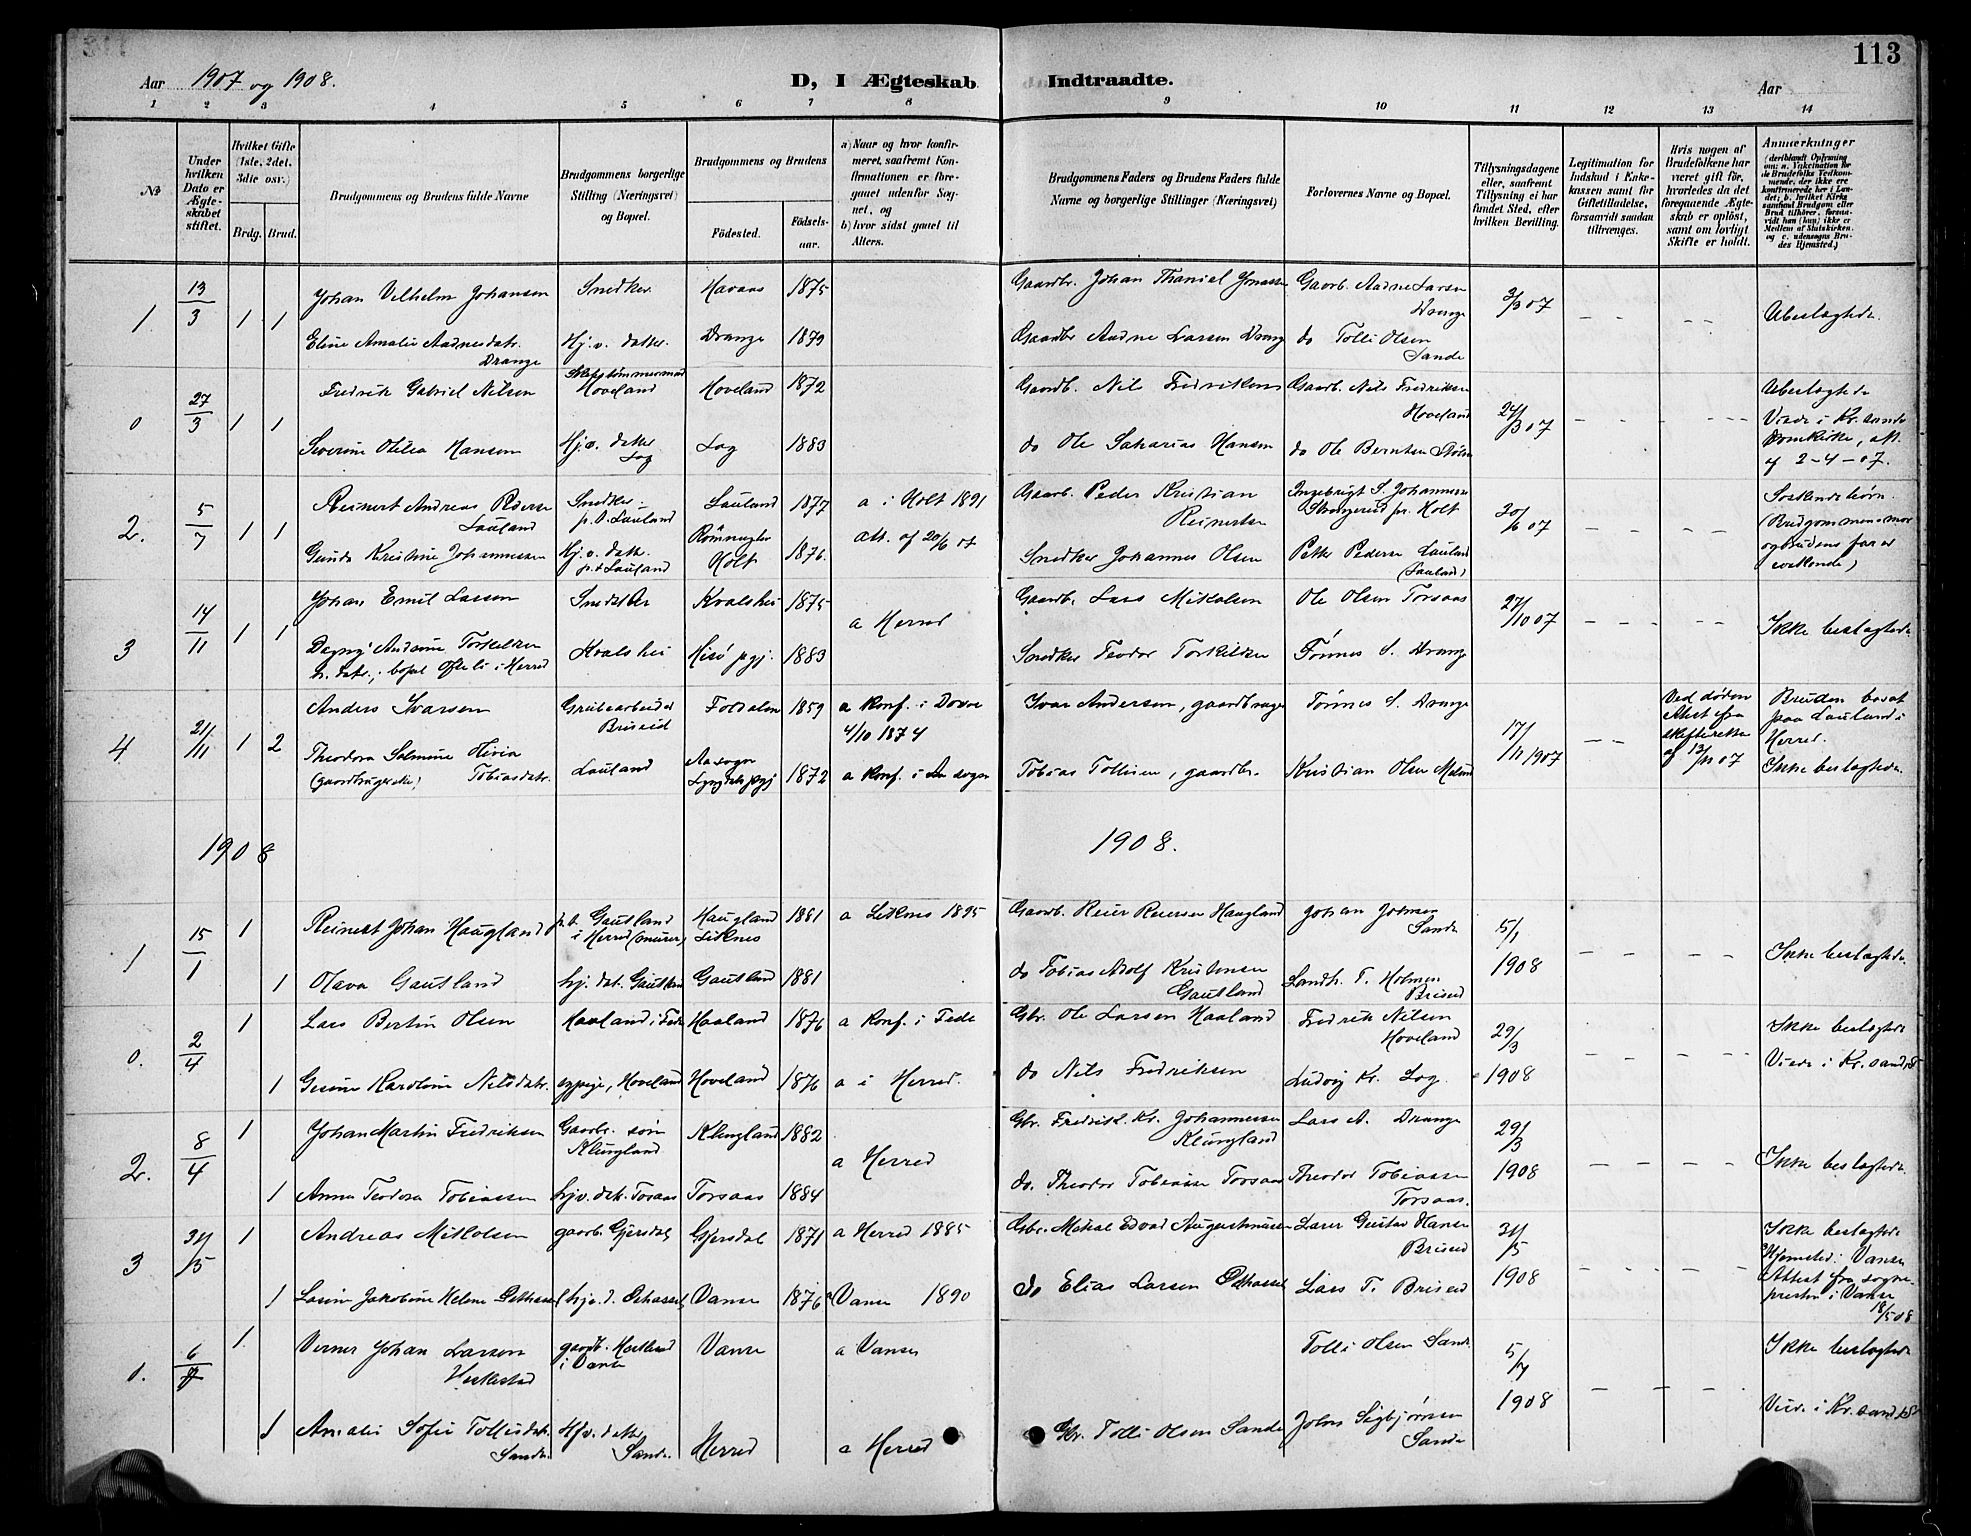 113
Aar 1907 og 1908.
D, I Ægteskab Indtraadte.
Aar
1 2 3 4 5 6 7 8 9 10 11 12 13 14
№
Under hvilken Dato er Ægteskabet stiftet.
Hvilket Gifte (1ste, 2det, 3die osv.)
Brdg. Brud.
Brudgommens og Brudens fulde Navne
Brudgommens borgerlige Stilling (Næringsvei) og Bopæl.
Brudgommens og Brudens
Födested. Födselsaar.
a) Naar og hvor konfirmeret, saafremt Konfirmationen er foregaaet udenfor Sognet, og
b) hvor sidst gaaet til Alters.
Brudgommens Faders og Brudens Faders fulde Navne og borgerlige Stillinger (Næringsvei)
Forlovernes Navne og Bopæl.
Tillysningsdagene eller, saafremt Tillysning ei har fundet Sted, efter hvilken Bevilling.
Legitimation for Indskud i Enkekassen samt for Giftetilladelse, forsaavidt saadan tiltrænges.
Hvis nogen af Brudefolkene har været gift för, hvorledes da det foregaaende Ægteskab er oplöst, samt om lovligt Skifte er holdt.
Anmærkninger
(deriblandt Oplysning om: a. Vakcination for de Brudefolks Vedkommende, der ikke ere konfirmerede her i Landet; b. hvilket Kirkesamfund Brudgom eller Brud tilhörer, forsaavidt han (hun) ikke er Medlem af Statskirken. og c. udensogns Brudes Hjemsted.)
1. 13/3 1 1
Johan Vilhelm Johansen Snedker Havaas 1875
Gaardbr. Johan Thaniel Jonassen Gaarb. Aadne Larsen Drange 3/3 07 – – – – Ubeslægtede.
Eline Amalie Aadnesdatr. Drange Hj.v. datter. Drange 1879
Gaardbr Aadne Larsen Drang do Tolli Olsen Sande
0 27/3 1 1
Fredrik Gabriel Nilsen Skibstømmermand Hoveland Hoveland 1872
Gaardb. Nils Fredriksen Gaardb. Nils Fredriksen Hoveland 24/3 07 – – – – Ubeslægtede
Severine Otilia Hansen Hj.v. datter Log Log 1883
do Ole Sakarias Hansen do Ole Berntsen
Viede i Kr.sands Domkirke, att. af 2-4-07.
2. 5/7 1 1
Reinert Andreas Peders Lauland Snedker p. t. Lauland Lauland 1877 a i Holt 1891
Gaarb. Peder Kristian Reinertsen Ingebrigt S. Johannessen pr. Holt 30/6 07 – – – –
Gunda Kristine Johannessen Hj.v. datr. p.t Lauland Holt 1876. att. af 20/6 07
Snedker Johannes Olsen Petter Pedersen Lauland (Lauland)
Søskendebørn. (Brudgommens mor og brudens far er søskende)
3 14/11 1 1
Johan Emil Larsen Snedker Kvalshei 1875 a Herred
Gaardbr. Lars Mikalsen Ole Olsen Torsaas 27/10 07 – – – – Ikke beslægtede
Dagny Andrine Torkelsen h. datr., bopæl Ofteli i Herred Kvalshei Hisø pgj. 1883
Snedker Teodor Torkildsen Tønnes S. Drange
4 21/11 1 2
Anders Ivarsen Grubearbeider Briseid Foldalen 1859 a Konf. i Dovre 4/10 1874
Ivar Andersen, gaardbruger Tønnes S. Drange 17/11 1907 – –
Ved døden Attest fra skifteretten af 13/11 07
Bruden bosat paa Lauland i Herred. Ikke beslægtede.
Theodora Selmine Olivia Tobiasdatr. (gaardbrugerske) Lauland Aa sogn Lyngdals pgj 1872 a Konf. i Aa sogn
Tobias Tollisen, gaardbr. Kristian Olsen
1908 1908.
1 15/1 1
Reinert Johan Haugland p.t. Gautland i Herred (murer) Haugland Liknes 1881 a Liknes 1895
Gaardb. Reier Reiersen Haugland Johan Johnsen Sande 5/1 1908 – – – – Ikke beslægtede.
1 Olava Gautland hj. dat. Gautland Gautland 1881
do Tobias Adolf Kristensen Gautland Landh. T. Holmen Briseid
0. 2/4 1
Lars Bertin Olsen Haaland i Fede Haaland 1876 a Konf. i Fede
Gbr. Ole Larsen Haaland Fredrik Nilsen Hoveland 29/3 1908 – – – – Ikke beslægtede
1 Gesine Karoline Nilsdatr. Hoveland Hoveland 1876 a i Herred.
do Nils Fredriksen Ludvig Kr. Log. Viede i Kr.sand
2. 8/4 1
Johan Martin Fredriksen Gaarbr. søn Klungland Klungland 1882 a Herred
Gbr. Fredrik Kr. Johannessen Klungland Lars A. Drange 29/3 1908 – – – – Ikke beslægtede
1 Anna Teodora Tobiassen hjv. datr. Torsaas Torsaas 1884
do. Theodor Tobiassen Torsaas Theodor Tobiassen Torsaas.
3 31/5 1
Andreas Mikalsen gaarb. Gjersdal Gjersdal 1871 a Herred 1885
Gbr. Mikal Edvard Augustinusen Lærer Gustav Hansen Briseid 31/5 1908 – – – – Ikke beslægtede
1 Jakobine Helene Østhassel hjv. d. Østhassel Vanse 1876 a Vanse 1890
do Elias Larsen Østhassel Lars T. Briseid
Hjemsted: Vanse Attest fra sognepresten i Vanse 18/5 08
0. 6/7 1.
Verner Johan Larsen gaardb. i Vanse Vanse a Vanse
Tolli Olsen Sande 5/7 1908 – – – – Ikke beslægtede
1 Amalie Sofie Tollisdatr. Sande Hjv. datter Sande. Herred a Herred
Gbr. Tolli Olsen Sande Johns Sigbjørnsen Sande Viet i Kr.sand